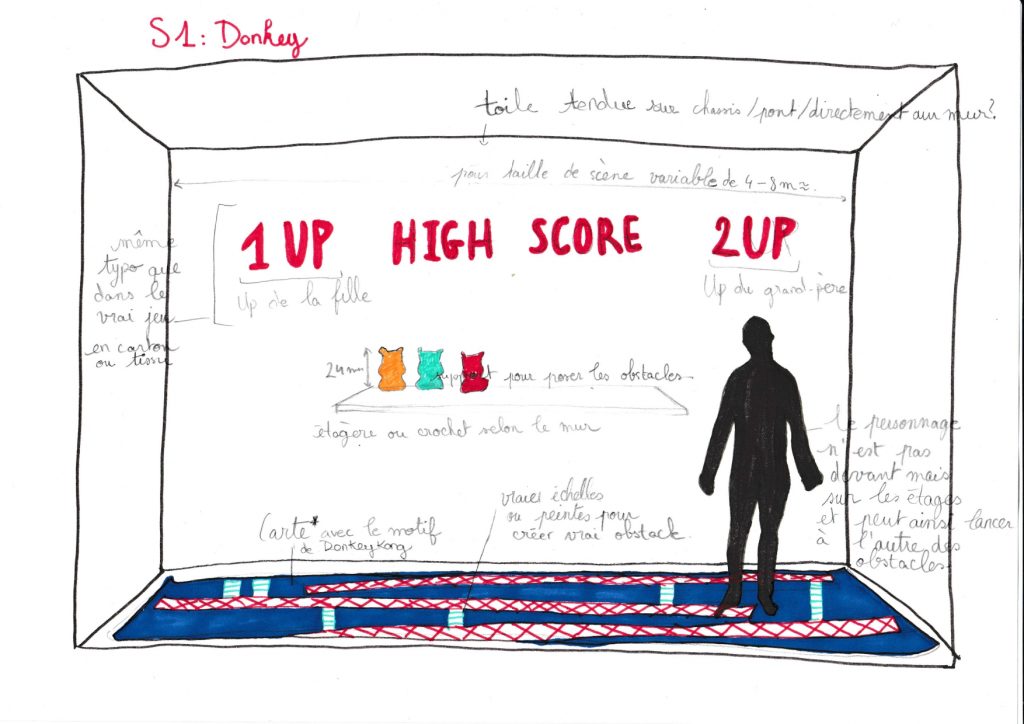 S1: Donkey
toile tendue sur chassis/pont/directement au mur?
pour taille de scène variable de 4-8m
1 UP HIGH SCORE 2UP
Up de la fille
Up du grand-père
même
typo que
dans le
vrai jeu
en carton
ou tissu
support pour poser les obstacles
étagère ou crochet selon le mur
le personnage
n'est pas
devant mais
sur les étages
et peut ainsi lancer
à l'autre des
obstacles
vraies échelles
ou peintes pour
créer vrai obstacle
Carte* avec le motif
de DonkeyKong